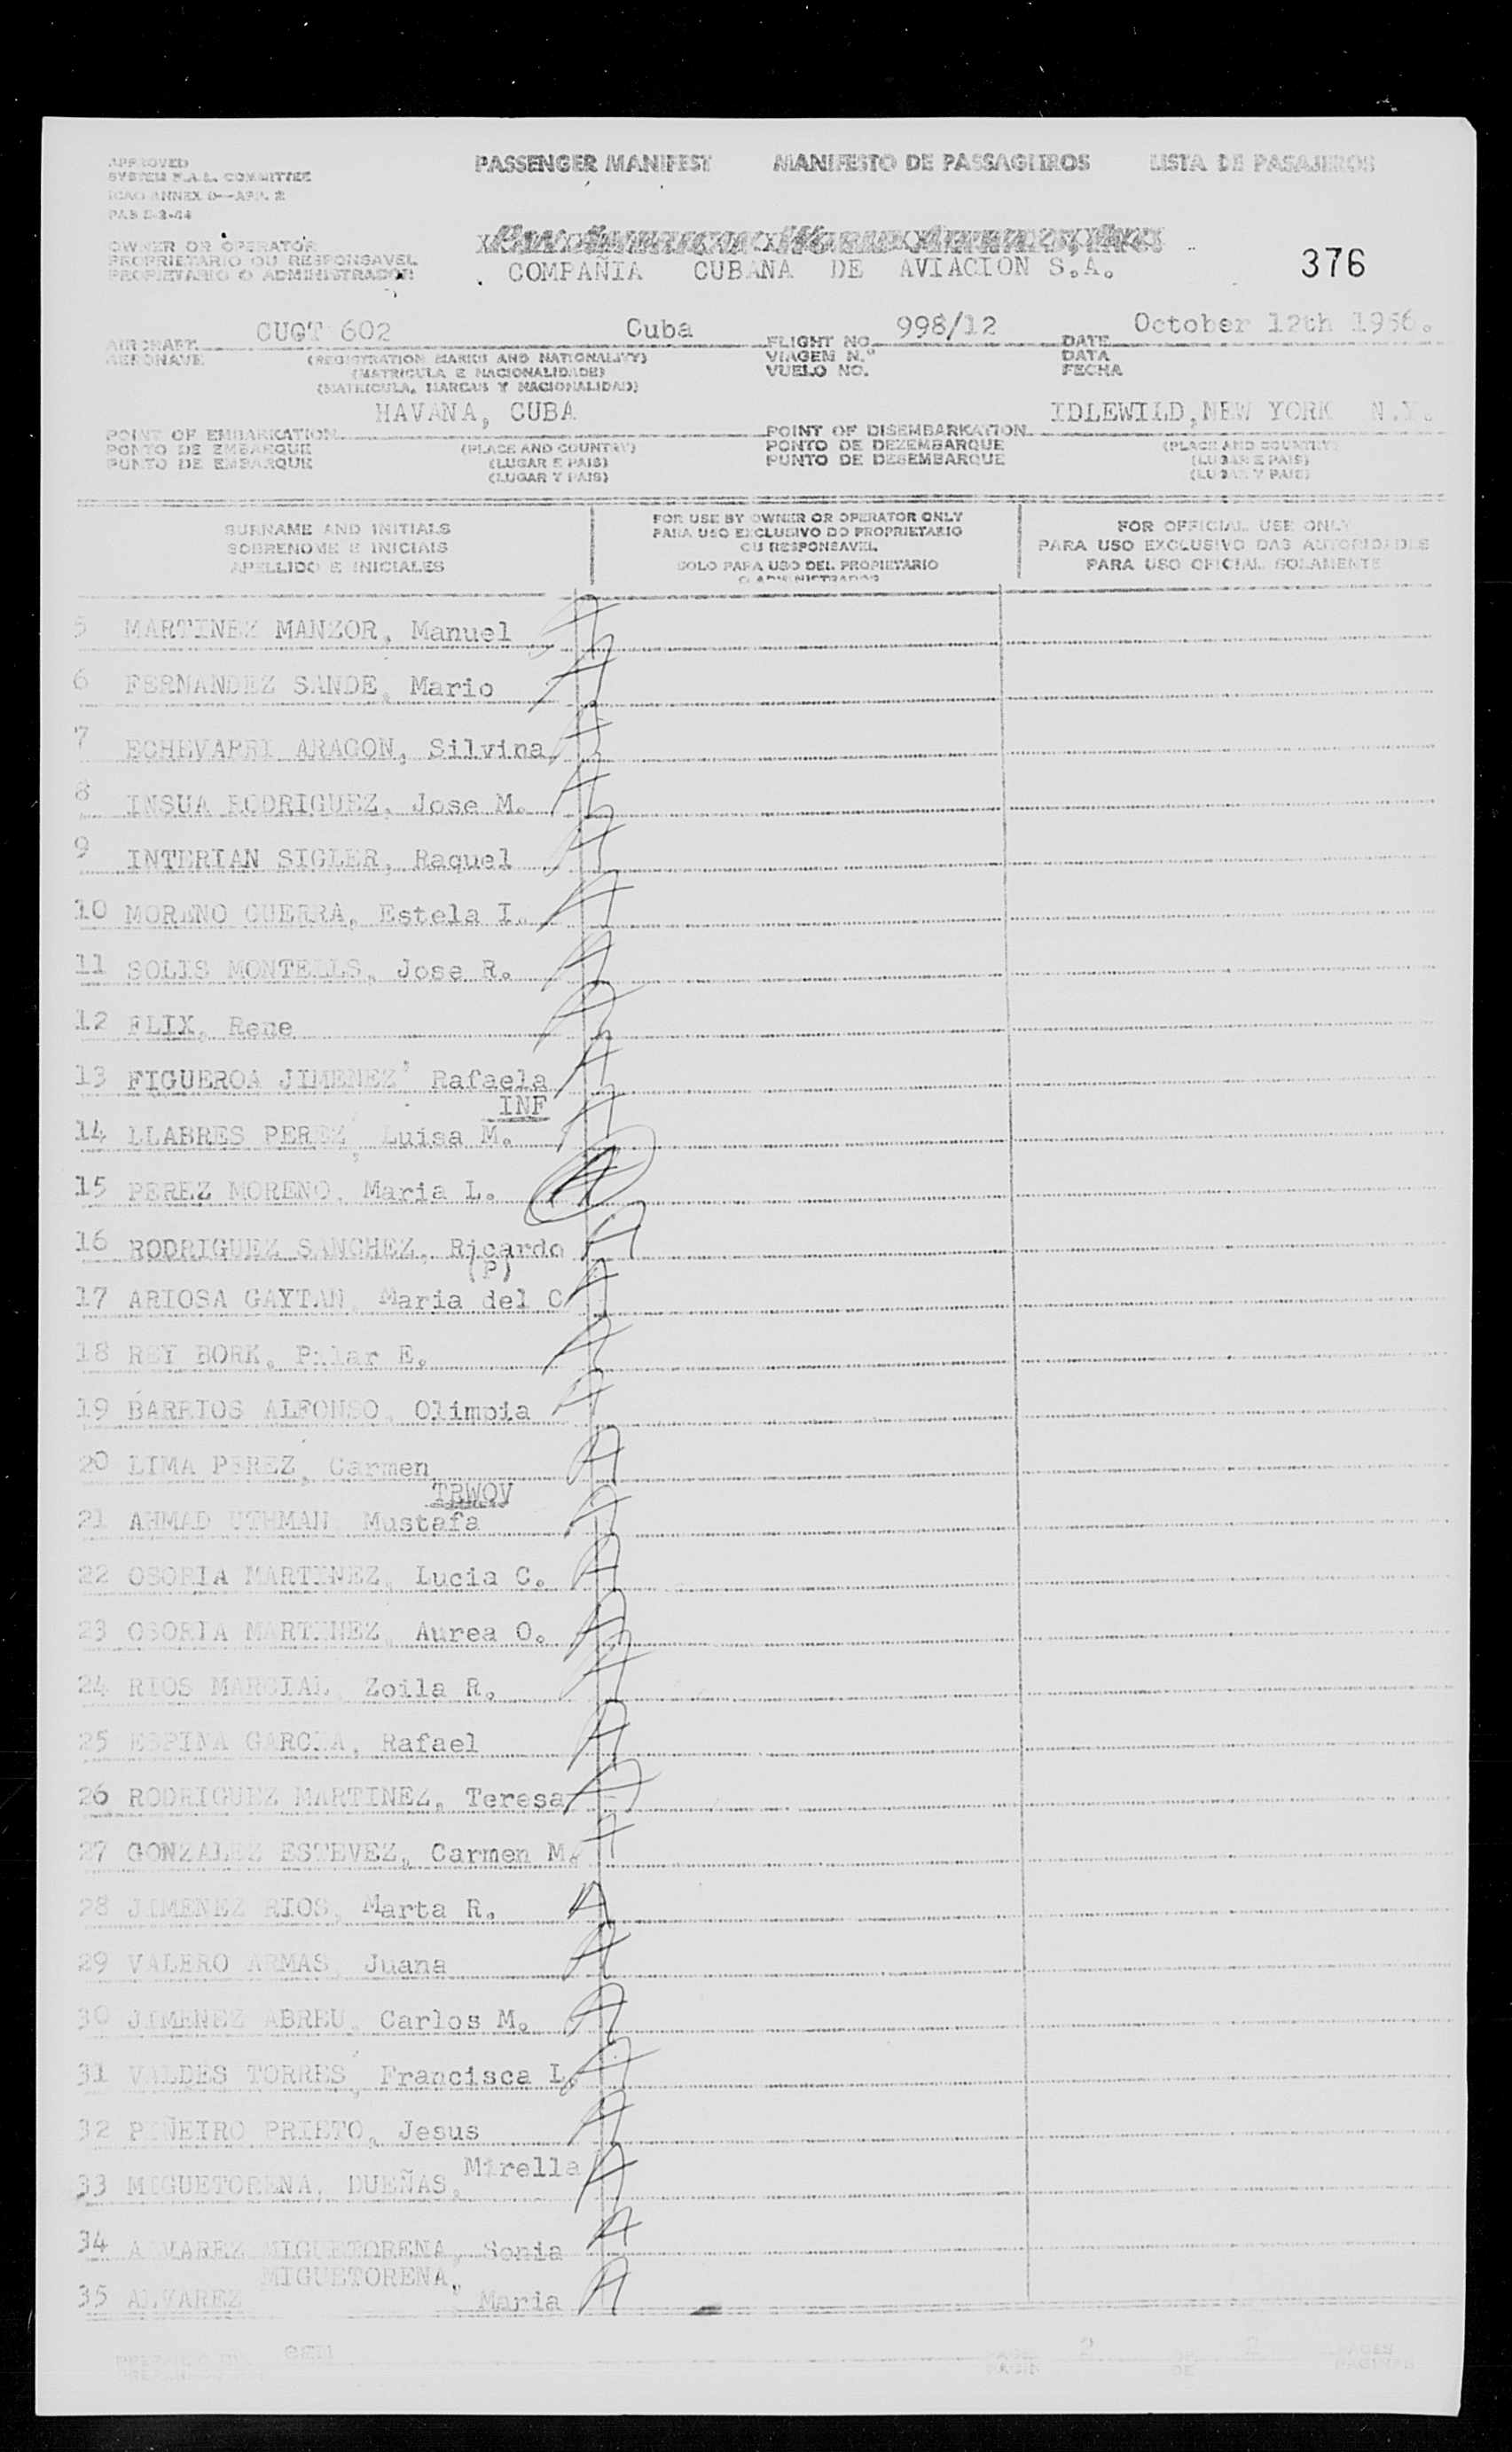 APPROVED
SYSTEM F.A.L. COMMITTEE
ICAO ANNEX 9—APP. 2
PASSENGER MANIFEST MANIFESTO DE PASSAGEIROS LISTA DE PASAJEROS
OWNER OR OPERATOR
PROPRIETARIO OU RESPONSAVEL
PROPIETARIO O ADMINISTRADOR
COMPAÑIA CUBANA DE AVIACION S.A.
376
AIRCRAFT CUGT 602 Cuba FLIGHT NO. 998/12 DATE October 12th 1956.
AERONAVE (REGISTRATION MARKS AND NATIONALITY) VIAGEM N.º DATA
(MATRICULA E NACIONALIDADE) VUELO NO. FECHA
(MATRICULA, MARCAS Y NACIONALIDAD)
HAVANA, CUBA IDLEWILD, NEW YORK N.Y.
POINT OF EMBARKATION POINT OF DISEMBARKATION
PONTO DE EMBARQUE (PLACE AND COUNTRY) PONTO DE DEZEMBARQUE (PLACE AND COUNTRY)
PUNTO DE EMBARQUE (LUGAR E PAIS) PUNTO DE DESEMBARQUE (LUGAR E PAIS)
(LUGAR Y PAIS) (LUGAR Y PAIS)
SURNAME AND INITIALS
SOBRENOME E INICIAIS
APELLIDO E INICIALES
FOR USE BY OWNER OR OPERATOR ONLY
PARA USO EXCLUSIVO DO PROPRIETARIO
OU RESPONSAVEL
SOLO PARA USO DEL PROPIETARIO
O ADMINISTRADOR
FOR OFFICIAL USE ONLY
PARA USO EXCLUSIVO DAS AUTORIDADES
PARA USO OFICIAL SOLAMENTE
5 MARTINEZ MANZOR, Manuel
6 FERNANDEZ SANDE, Mario
7 ECHEVARRI ARAGON, Silvina
8 INSUA RODRIGUEZ, Jose M.
9 INTERIAN SIGLER, Raquel
10 MORENO GUERRA, Estela I.
11 SOLIS MONTELLS, Jose R.
12 FLIX, Rene
13 FIGUEROA JIMENEZ, Rafaela
INF
14 LLABRES PEREZ, Luisa M.
15 PEREZ MORENO, Maria L.
16 RODRIGUEZ SANCHEZ, Ricardo
(P)
17 ARIOSA GAYTAN, Maria del C
18 REY BORK, Pilar E.
19 BARRIOS ALFONSO, Olimpia
20 LIMA PEREZ, Carmen
TRWOV
21 AHMAD UTHMAN, Mustafa
22 OSORIA MARTINEZ, Lucia C.
23 OSORIA MARTINEZ, Aurea O.
24 RIOS MARCIAL, Zoila R.
25 ESPINA GARCIA, Rafael
26 RODRIGUEZ MARTINEZ, Teresa
27 GONZALEZ ESTEVEZ, Carmen M.
28 JIMENEZ RIOS, Marta R.
29 VALERO ARMAS, Juana
30 JIMENEZ ABREU, Carlos M.
31 VALDES TORRES, Francisca L.
32 PIÑEIRO PRIETO, Jesus
33 MIGUETORENA, DUEÑAS, Mirella
34 ALVAREZ MIGUETORENA, Sonia
MIGUETORENA,
35 ALVAREZ Maria
2 2 PAGES